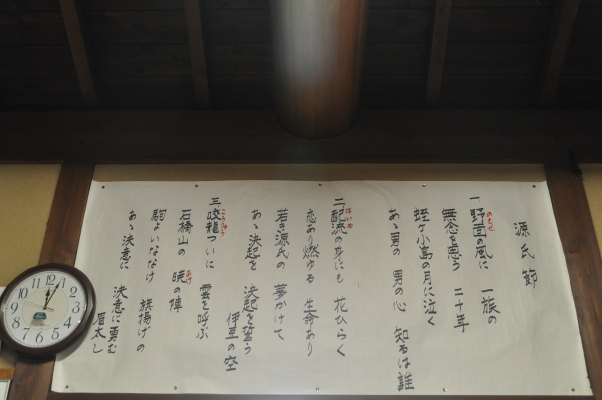 源氏節
一 野面の風に 一族の
のもせ
無念を思う 二十年
蛭ヶ小島の月に泣く
あゝ男の 男の心 知るは誰
二 配流の身にも 花ひらく
はいる
恋あり燃ゆる 生命あり
若き源氏の 夢かけて
あゝ決起を 決起を誓う
伊豆の空
三 咬龍ついに 雲を呼ぶ
こうりゅう
石橋山の 暁の陣
あけ
駒よいななけ 旗揚げの
あゝ決意に 決意に勇む
眉太し
12
1
2
3
4
5
6
7
8
9
10
11